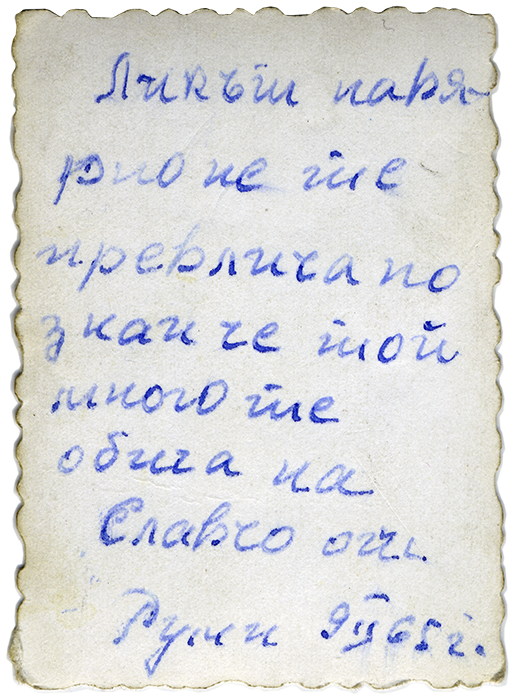 Ликът наря-
рпо не те
превлича но
зкай че той
много те
обича на
Славчо от
Руми 9 II 65 г.